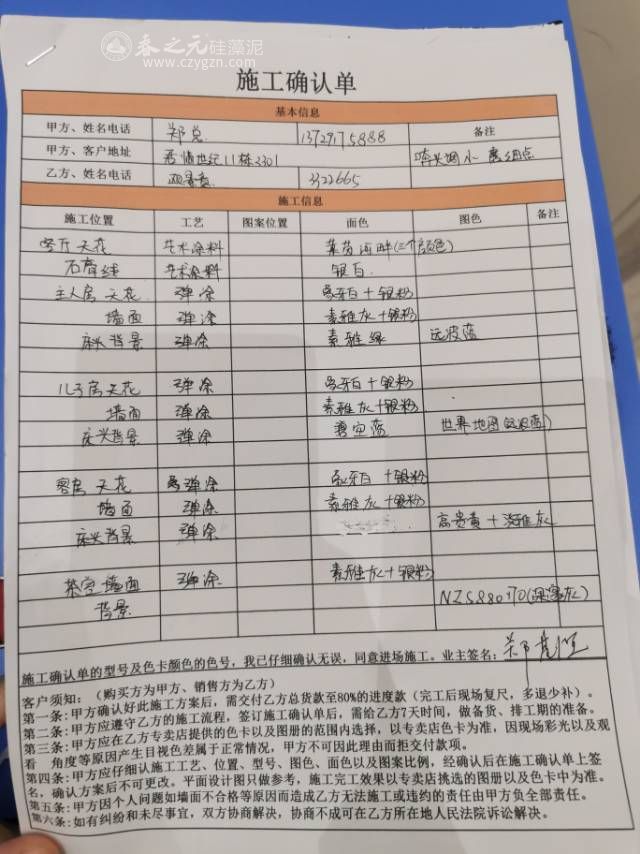 春之元硅藻泥
www.czygzn.com
施工确认单
基本信息
甲方、姓名电话 郑总 13729175888 备注
甲方、客户地址 君情世纪11栋2301 喷头调小
乙方、姓名电话 3322665
施工信息
施工位置 工艺 图案位置 面色 图色 备注
客厅 天花 艺术涂料 莱茵河畔(三个颜色)
石膏线 艺术涂料 银白
主人房 天花 弹涂 象牙白+银粉
墙面 弹涂 素雅灰+银粉
床头背景 弹涂 素雅绿 远波蓝
儿子房天花 弹涂 象牙白+银粉
墙面 弹涂 素雅灰+银粉
床头背景 弹涂 碧空蓝 世界地图(远波蓝)
客房 天花 弹涂 象牙白+银粉
墙面 弹涂 素雅灰+银粉
床头背景 弹涂 高贵黄+浅雅灰
茶室 墙面 弹涂 素雅灰+银粉
背景 NZS88070(深褐灰)
施工确认单的型号及色卡颜色的色号，我已仔细确认无误，同意进场施工。业主签名：
客户须知：（购买方为甲方、销售方为乙方）
第一条：甲方确认好此施工方案后，需交付乙方总货款至80%的进度款（完工后现场复尺，多退少补）。
第二条：甲方应遵守乙方的施工流程，签订施工确认单后，需给乙方7天时间，做备货、排工期的准备。
第三条：甲方应在乙方专卖店提供的色卡以及图册的范围内选择，以专卖店色卡为准，因现场彩光以及观
看 角度等原因产生目视色差属于正常情况，甲方不可因此理由而拒交付款项。
第四条：甲方应仔细认施工工艺、位置、型号、图色、面色以及图案比例，经确认后在施工确认单上签
名，确认方案后不可更改。平面设计图只做参考，施工完工效果以专卖店挑选的图册以及色卡中为准。
第五条：甲方因个人问题如墙面不合格等原因而造成乙方无法施工或违约的责任由甲方负全部责任。
第六条：如有纠纷和未尽事宜，双方协商解决，协商不成可在乙方所在地人民法院诉讼解决。